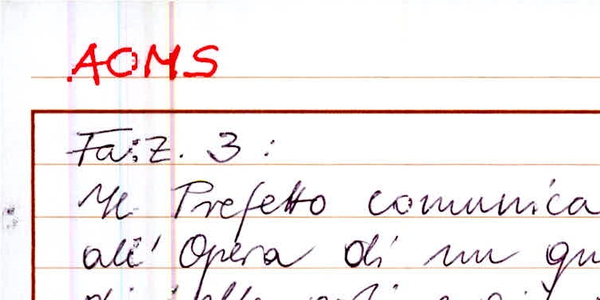 AOMS
Faiz. 3:
Il Prefetto comunica
all' Opera di un qu
di